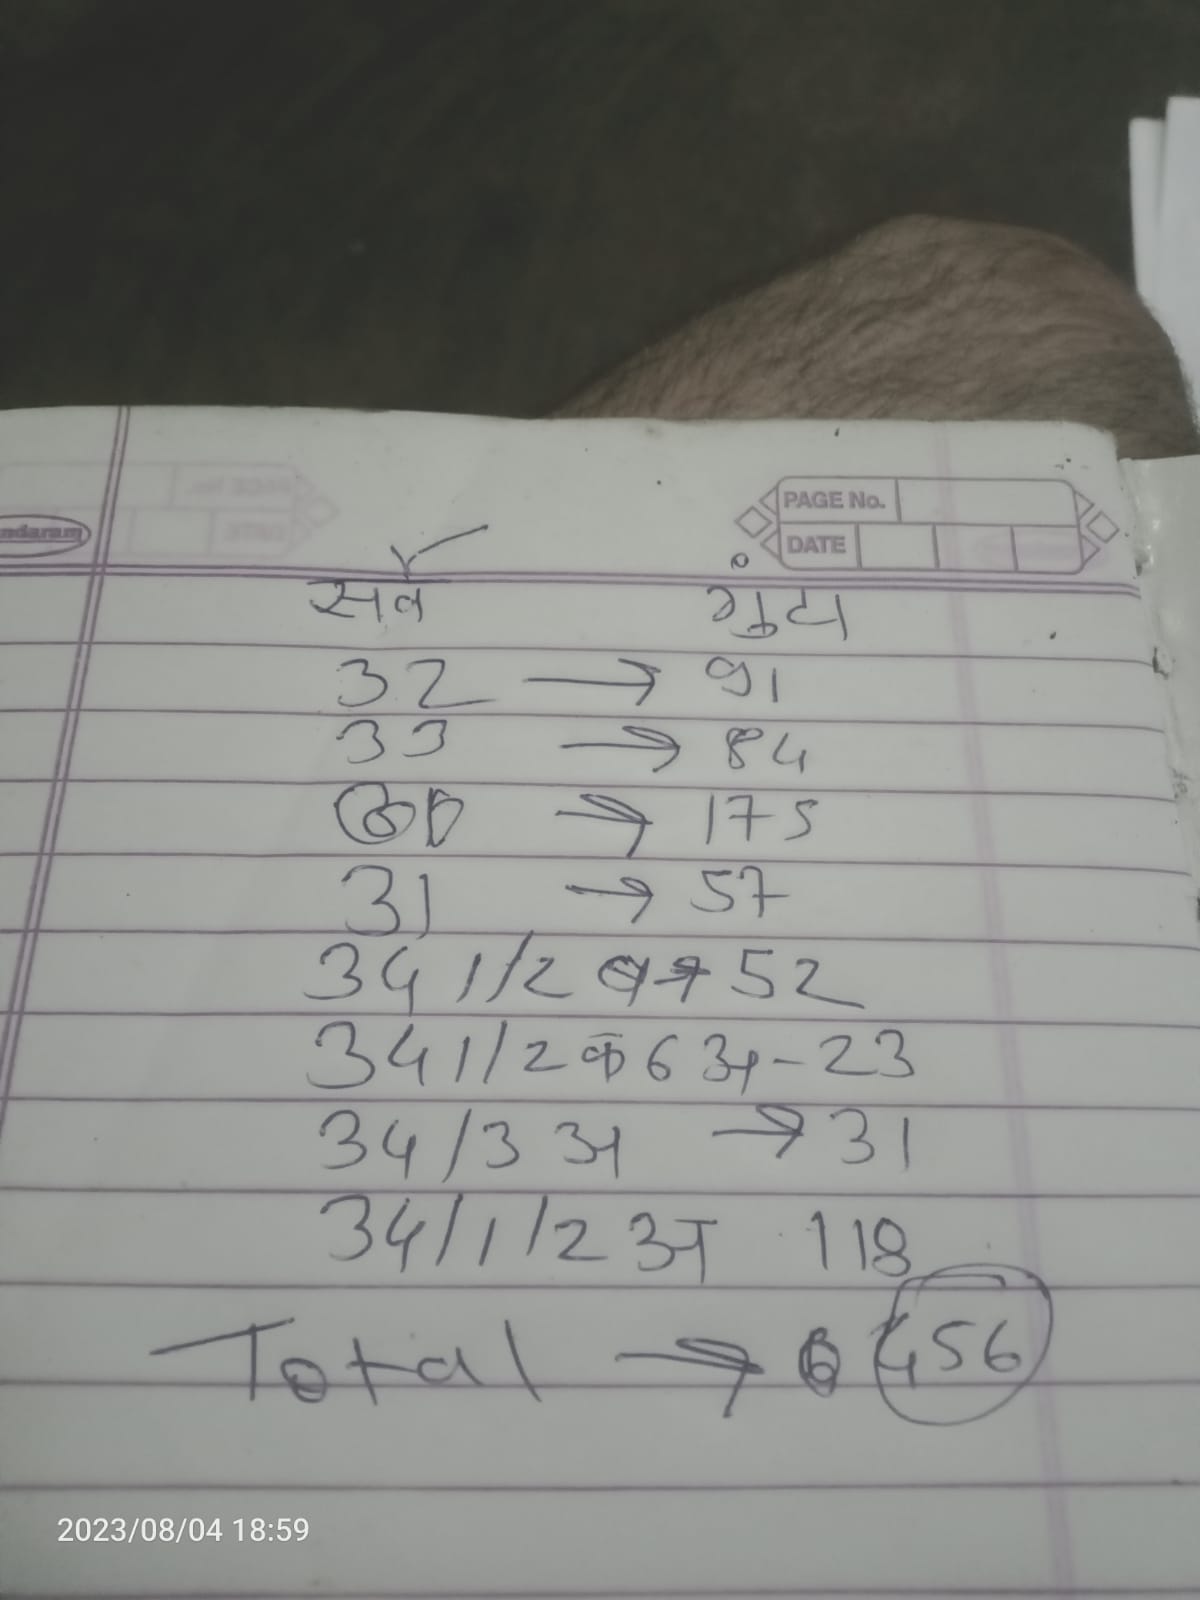 PAGE No.
DATE
ndaram
सर्वे गुंठा
32 → 91
33 → 84
→ 175
31 → 57
34 1/2 ब → 52
34 1/2 क 6 अ - 23
34/3 अ → 31
34/1/2 अ 118
Total → 456
2023/08/04 18:59